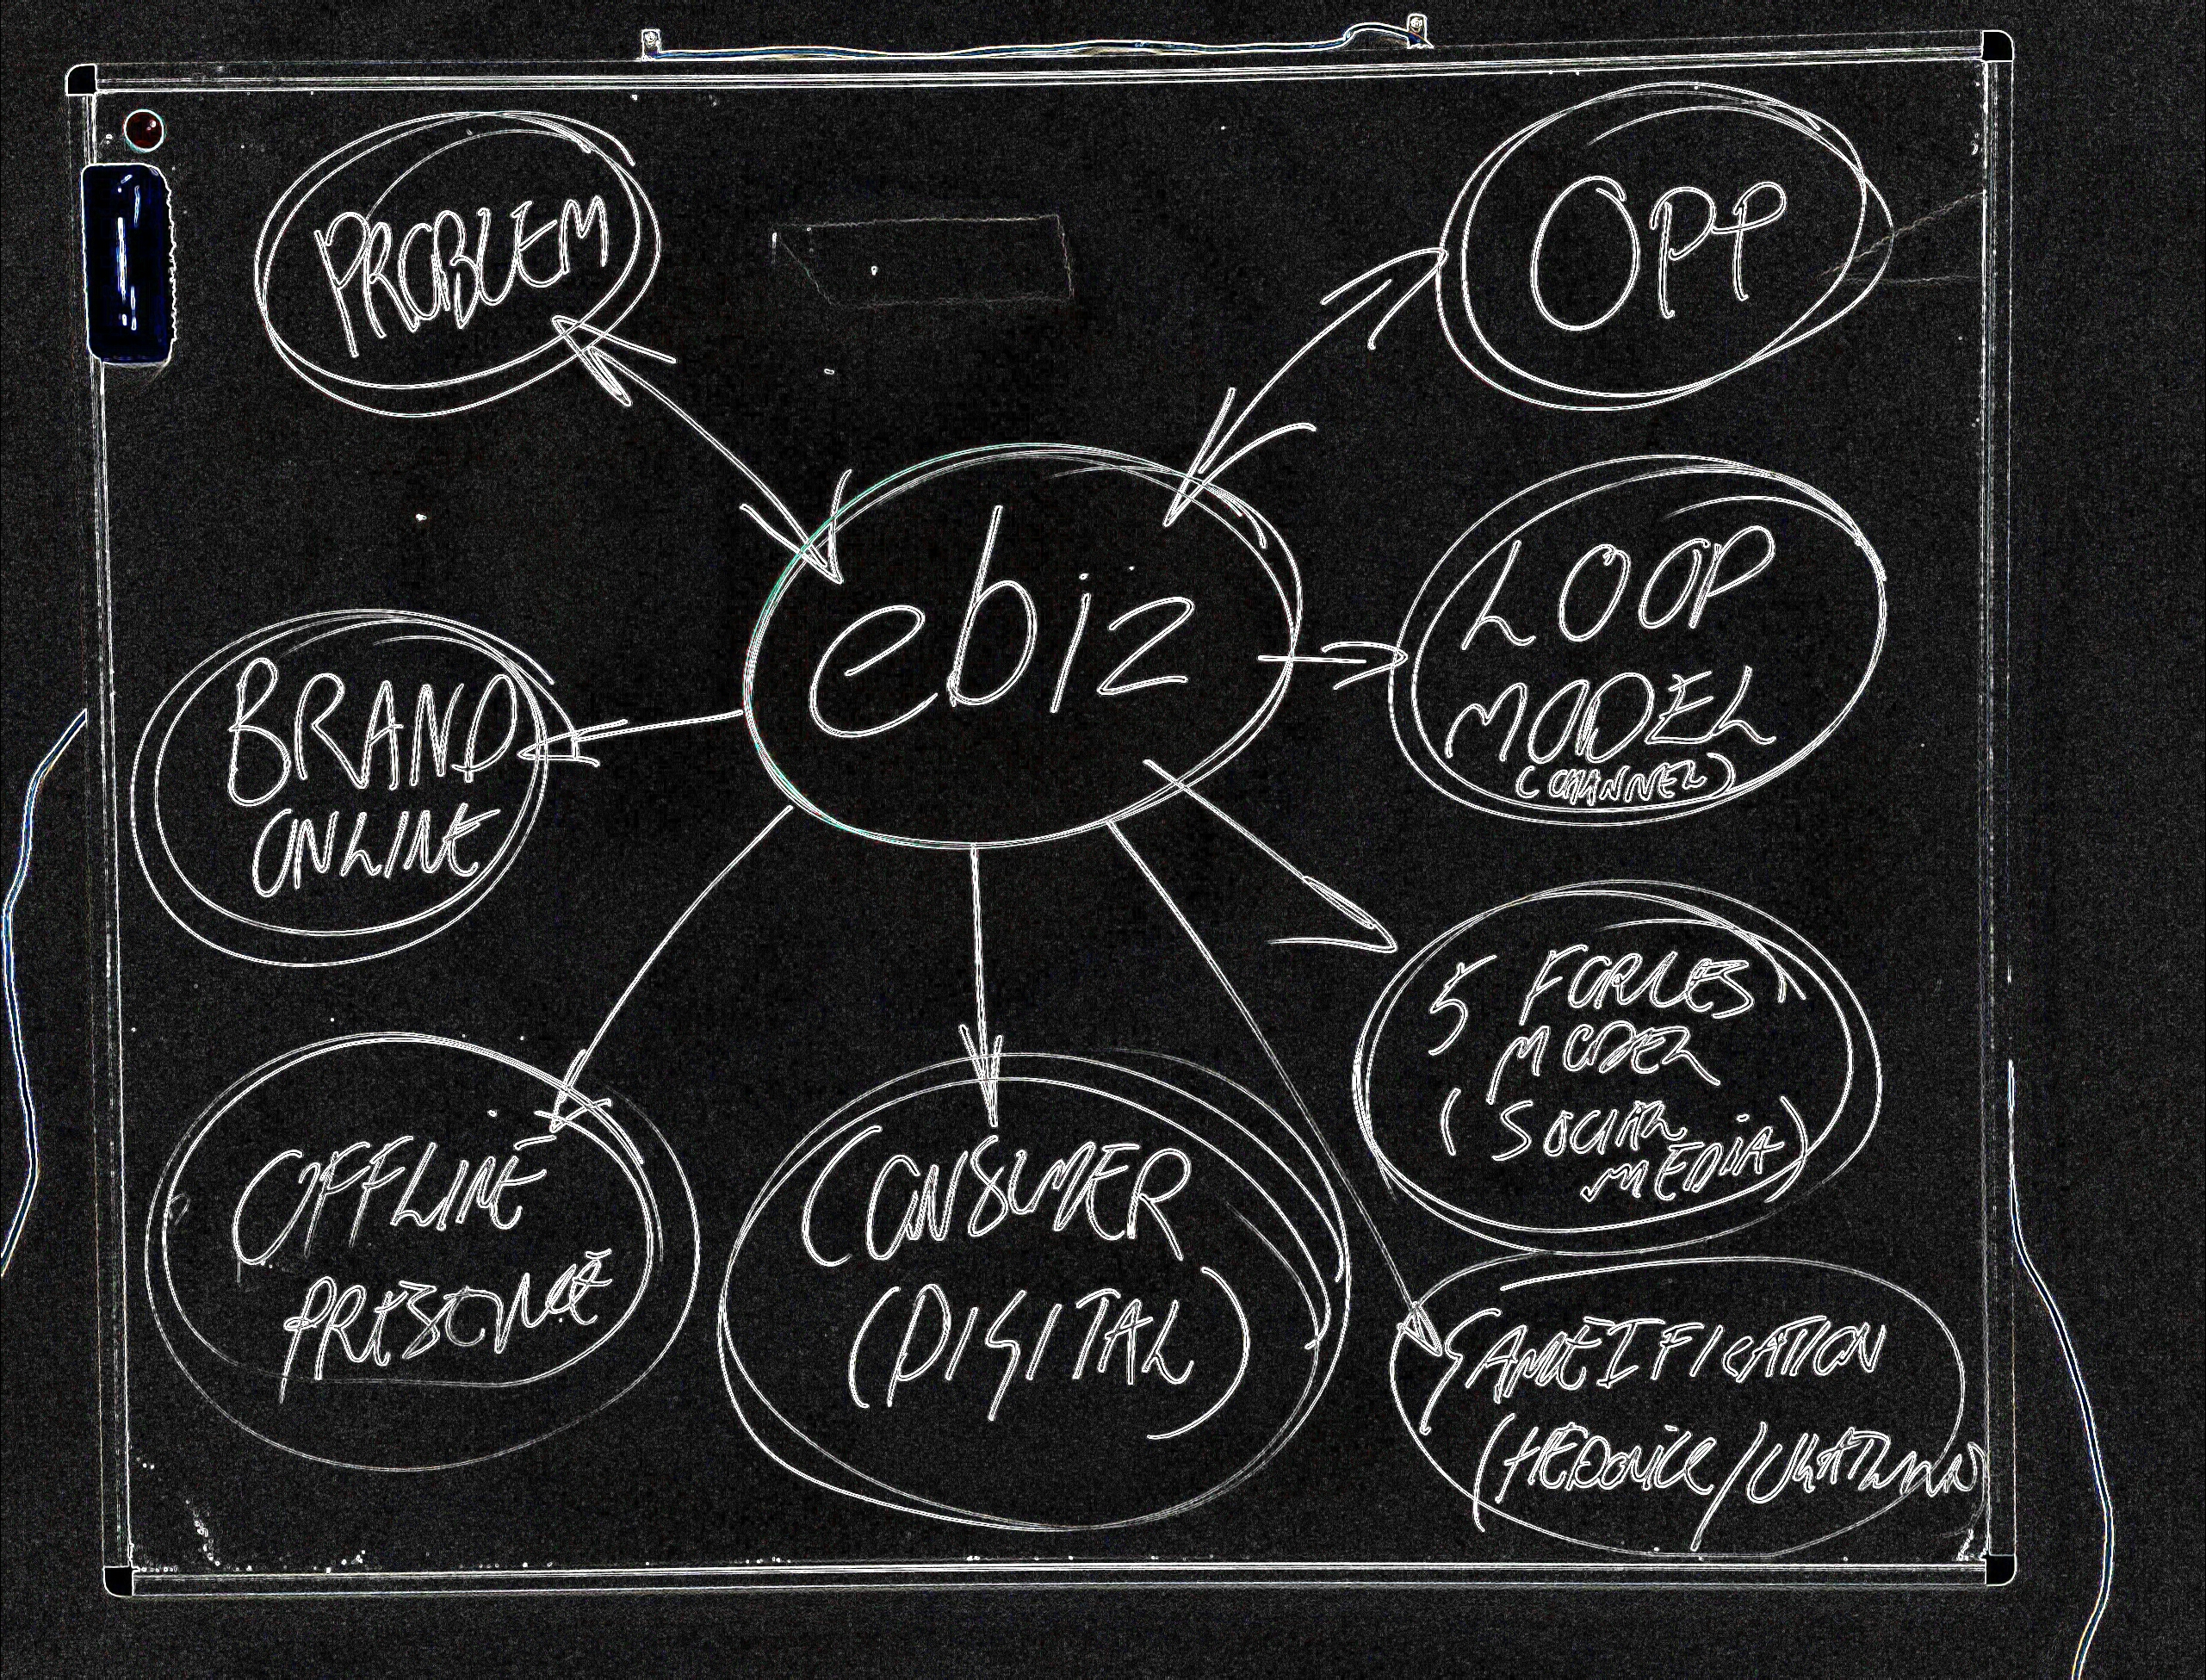 PROBLEM
OPP
ebiz
LOOP
MODEL
(CHANNEL)
BRAND
ONLINE
5 FORCES
MODEL
(SOCIAL
MEDIA)
OFFLINE
PRESENCE
CONSUMER
(DIGITAL)
GAMEIFICATION